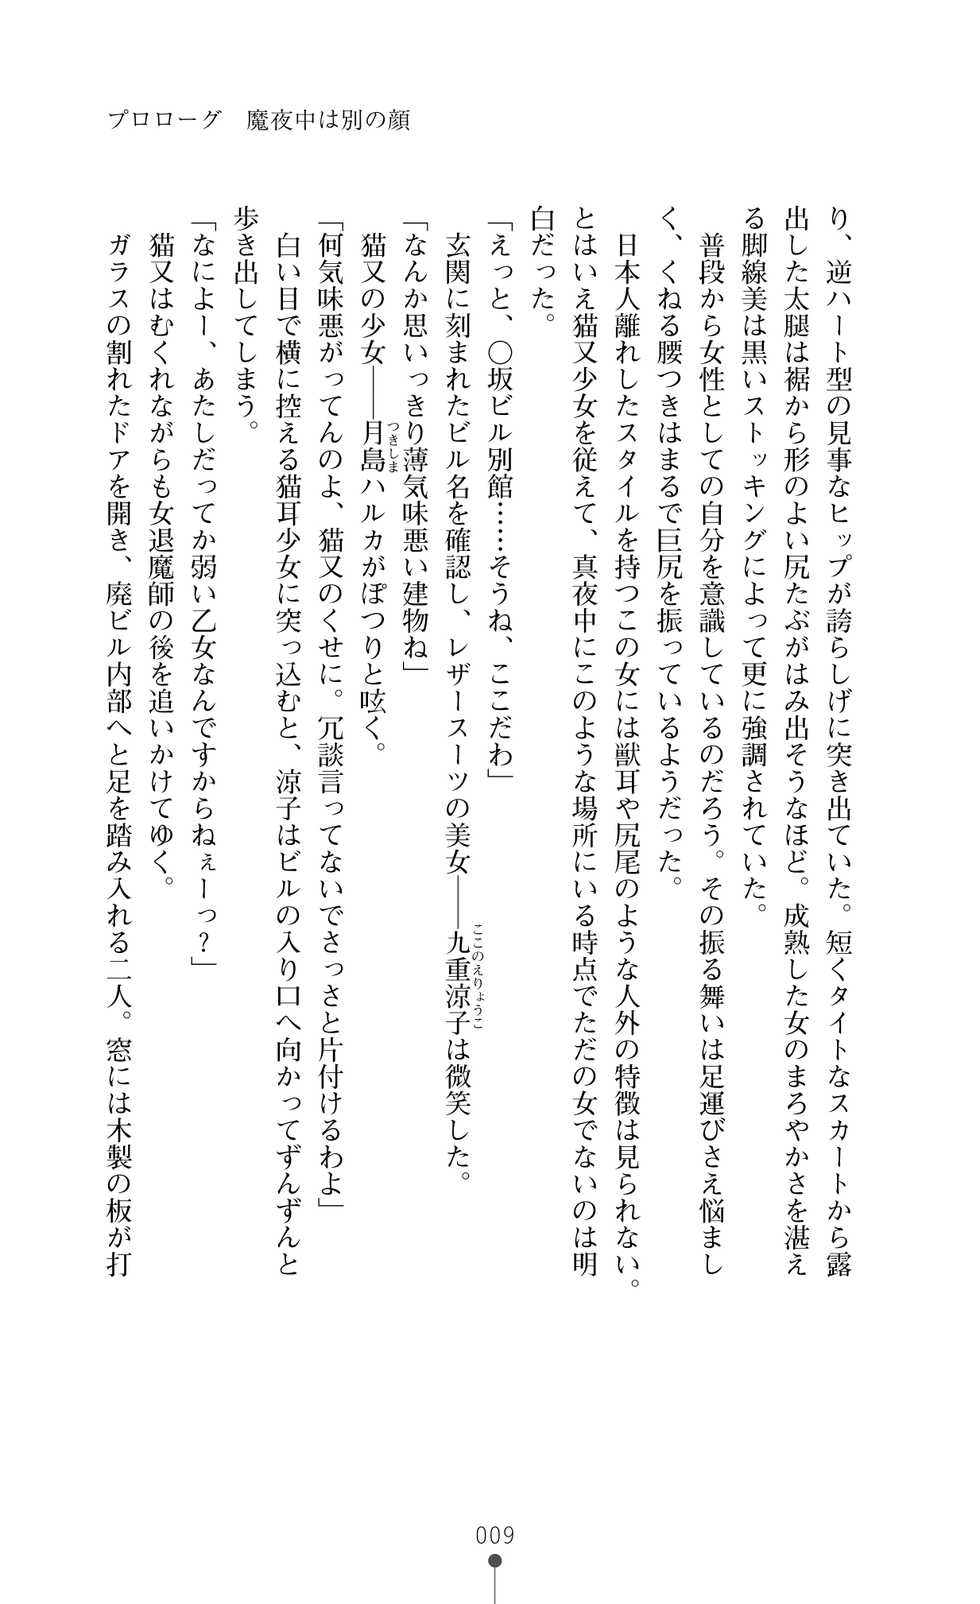 プロローグ　魔夜中は別の顔
り、逆ハート型の見事なヒップが誇らしげに突き出ていた。短くタイトなスカートから露
出した太腿は裾から形のよい尻たぶがはみ出そうなほど。成熟した女のまろやかさを湛え
る脚線美は黒いストッキングによって更に強調されていた。
　普段から女性としての自分を意識しているのだろう。その振る舞いは足運びさえ悩まし
く、くねる腰つきはまるで巨尻を振っているようだった。
　日本人離れしたスタイルを持つこの女には獣耳や尻尾のような人外の特徴は見られない。
とはいえ猫又少女を従えて、真夜中にこのような場所にいる時点でただの女でないのは明
白だった。
「えっと、〇坂ビル別館……そうね、ここだわ」
　玄関に刻まれたビル名を確認し、レザースーツの美女――九重涼子は微笑した。
ここのえりょうこ
「なんか思いっきり薄気味悪い建物ね」
　猫又の少女――月島ハルカがぽつりと呟く。
つきしま
「何気味悪がってんのよ、猫又のくせに。冗談言ってないでさっさと片付けるわよ」
　白い目で横に控える猫耳少女に突っ込むと、涼子はビルの入り口へ向かってずんずんと
歩き出してしまう。
「なによー、あたしだってか弱い乙女なんですからねぇーっ？」
　猫又はむくれながらも女退魔師の後を追いかけてゆく。
　ガラスの割れたドアを開き、廃ビル内部へと足を踏み入れる二人。窓には木製の板が打
009